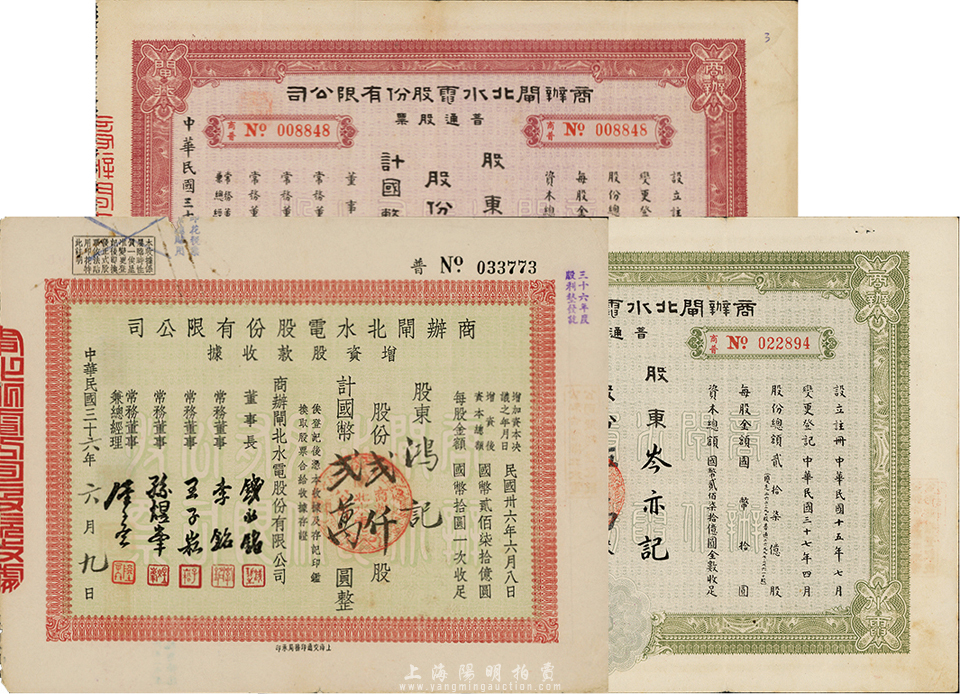 商辦閘北水電股份有限公司
普通股票
商普 No 008848
商普 No 008848
閘北
商辦
設立註
變更登
股份總
每股金
資本總
股東
股份
計國幣
董事
常務董
常務董
常務董
常務董
兼總經
中華民國三十
普 No. 033773
三十六年度
商辦閘北水電股份有限公司
增資股款收據
增加資本決議之年月日 民國卅六年六月八日
增資後資本總額 國幣貳佰柒拾億圓
每股金額 國幣拾圓一次收足
股東 鴻記
股份 貳仟 股
計國幣 貳萬 圓整
俟登記後憑本收據及存記印鑑
換取股票合給收據存證
商辦閘北水電股份有限公司
董事長 錢永銘
常務董事 李銘
常務董事 王子崧
常務董事
常務董事
兼總經理
中華民國三十六年六月九日
上海交通印務局承印
商辦閘北水電
普通
商普 No 022894
商辦
水電
設立註冊 中華民國十五年七月
變更登記 中華民國三十七年四月
股份總額 貳拾柒億股
每股金額 國幣拾圓
資本總額 國幣貳佰柒拾億圓全數收足
股東 岑亦記
股份
上海陽明拍賣
www.yangmingauction.com